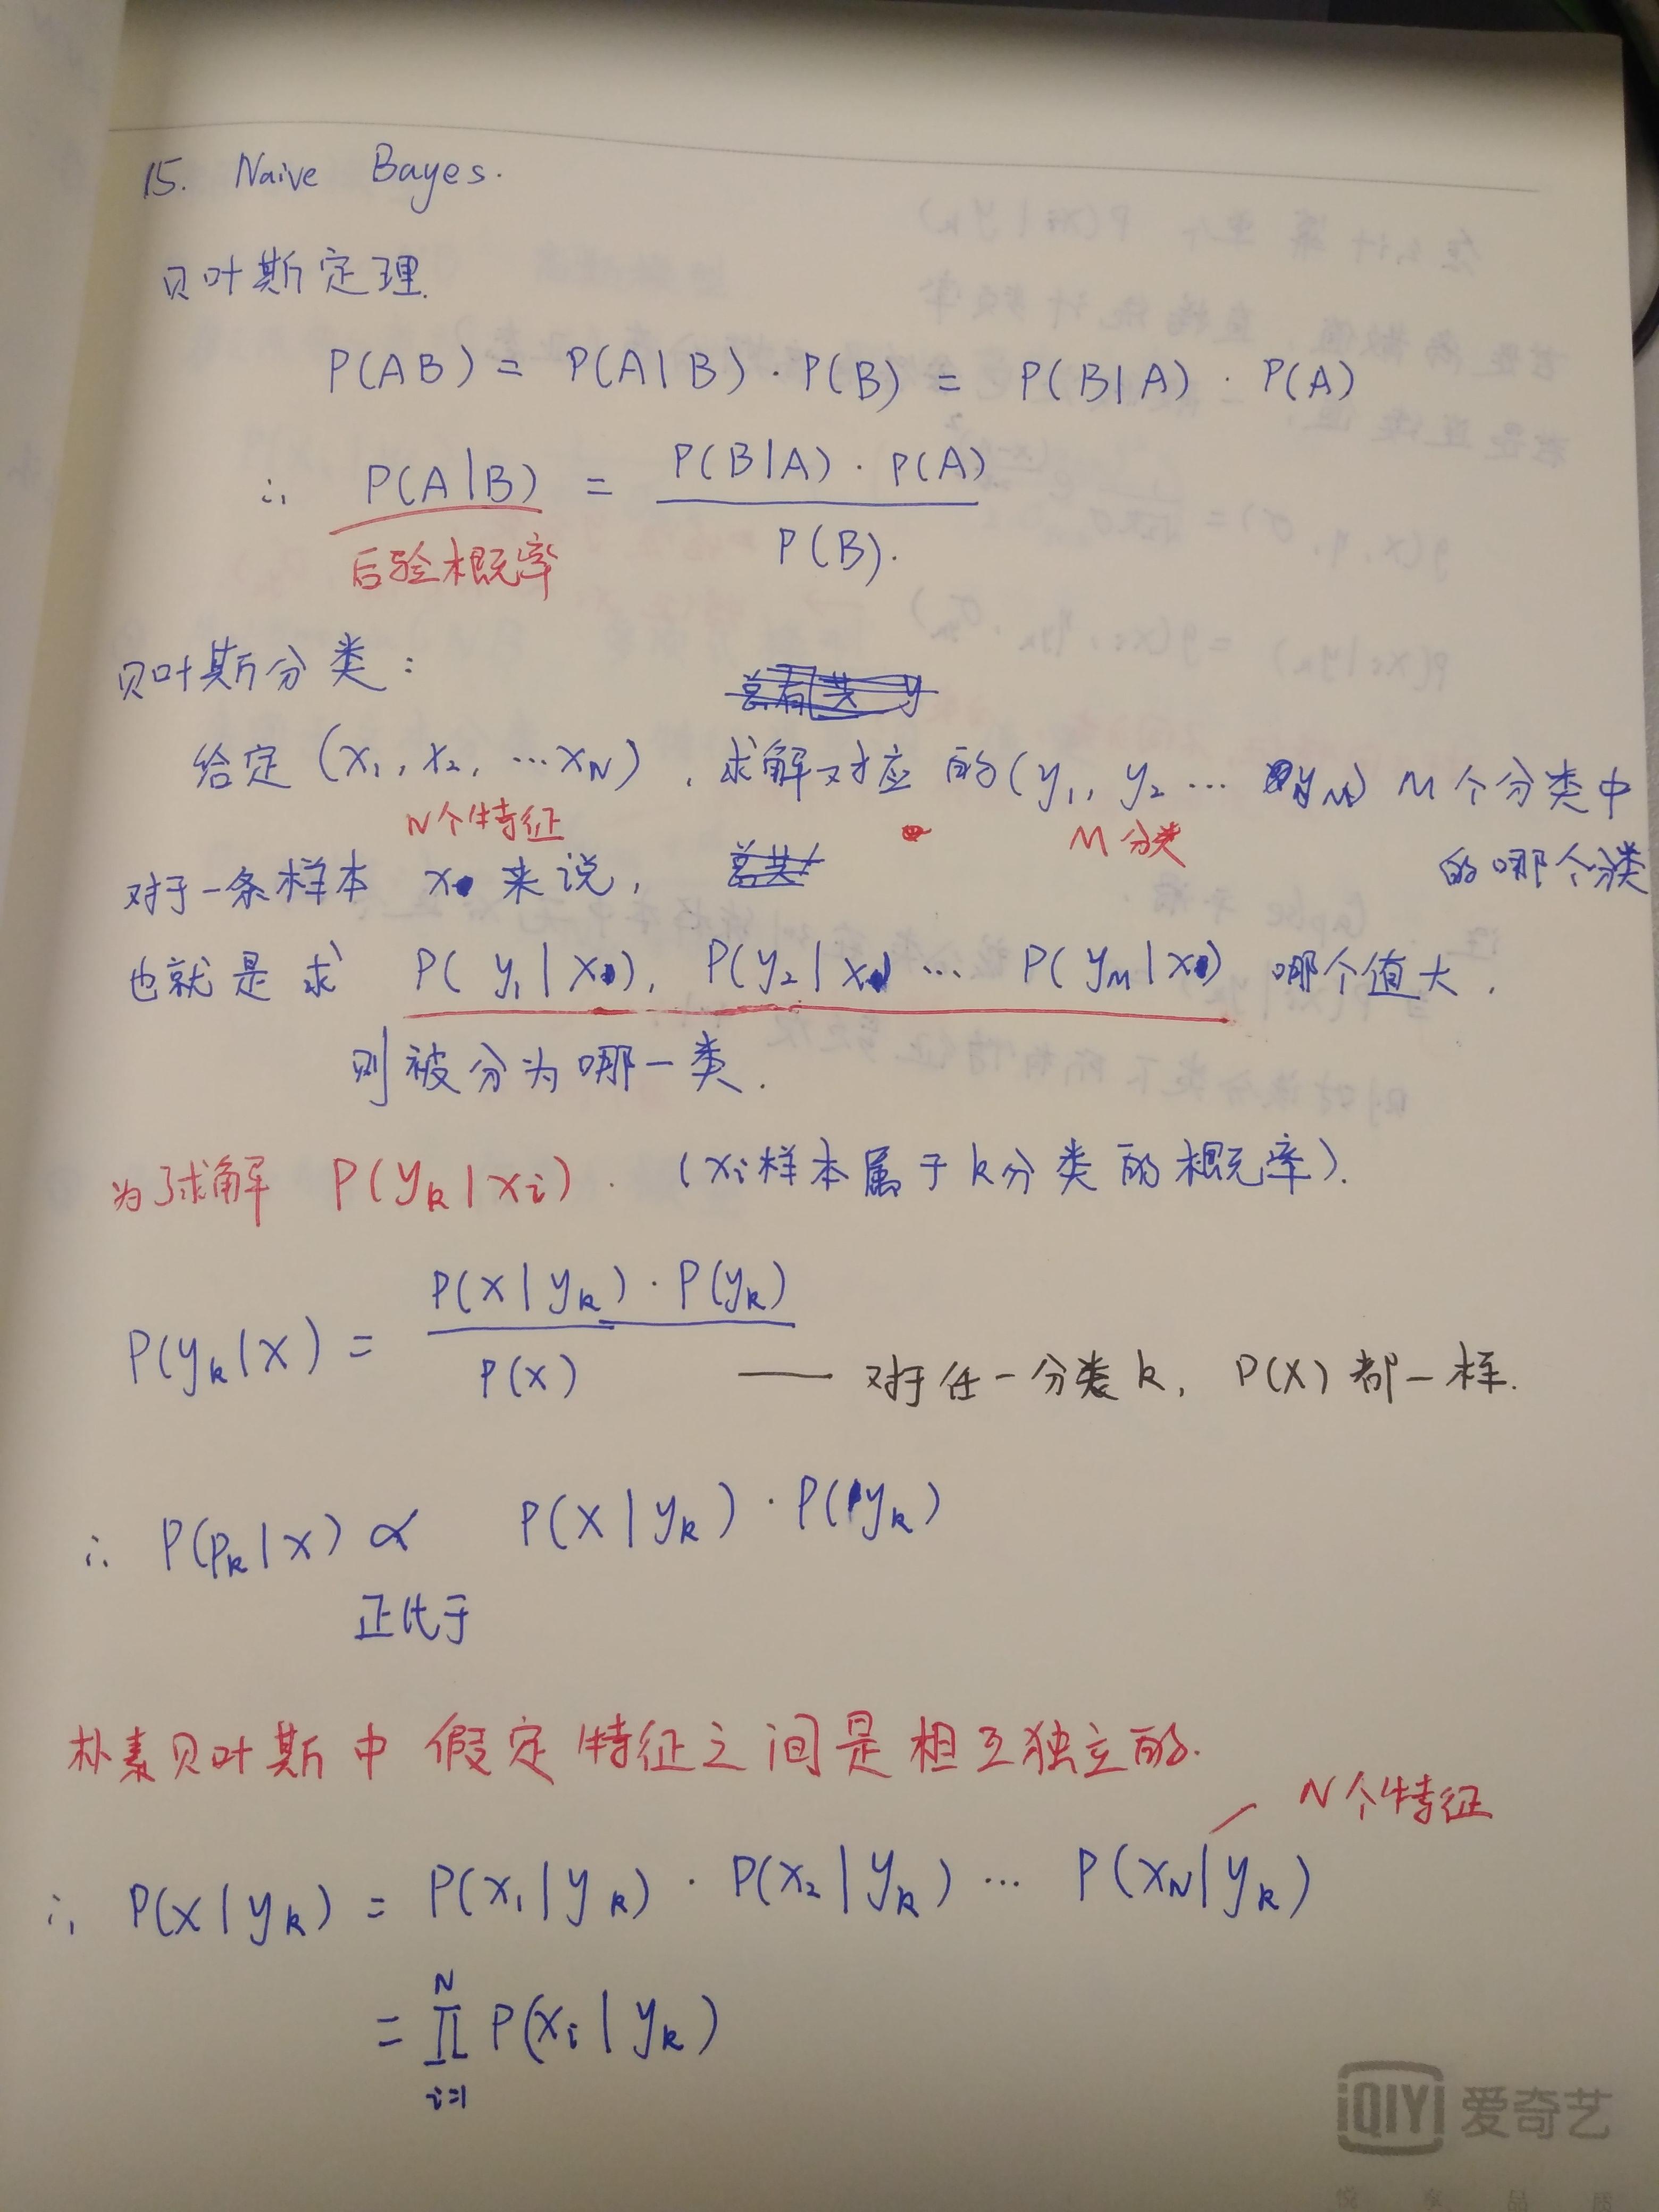 15. Naive Bayes.
贝叶斯定理.
P(AB) = P(A|B) · P(B) = P(B|A) · P(A)
∴ P(A|B) = P(B|A) · P(A) / P(B).
后验概率
贝叶斯分类:
给定 (x₁, x₂, ⋯xN), 求解对应的(y₁, y₂ ⋯ yM) M个分类中
N个特征 M分类
的哪个分类
对于一条样本 x 来说,
也就是求 P(y₁|x), P(y₂|x) ⋯ P(yM|x) 哪个值大,
则被分为哪一类.
为了求解 P(yk|xi). (xi样本属于k分类的概率).
P(yk|x) = P(x|yk) · P(yk) / P(x) —— 对于任一分类k, P(X)都一样.
∴ P(pk|x) ∝ P(x|yk) · P(yk)
正比于
朴素贝叶斯中 假定特征之间是相互独立的.
N个特征
∴ P(x|yk) = P(x₁|yk) · P(x₂|yk) ⋯ P(xN|yk)
= ∏ᵢ₌₁ᴺ P(xi|yk)
iQIYI 爱奇艺
悦 享 品 质